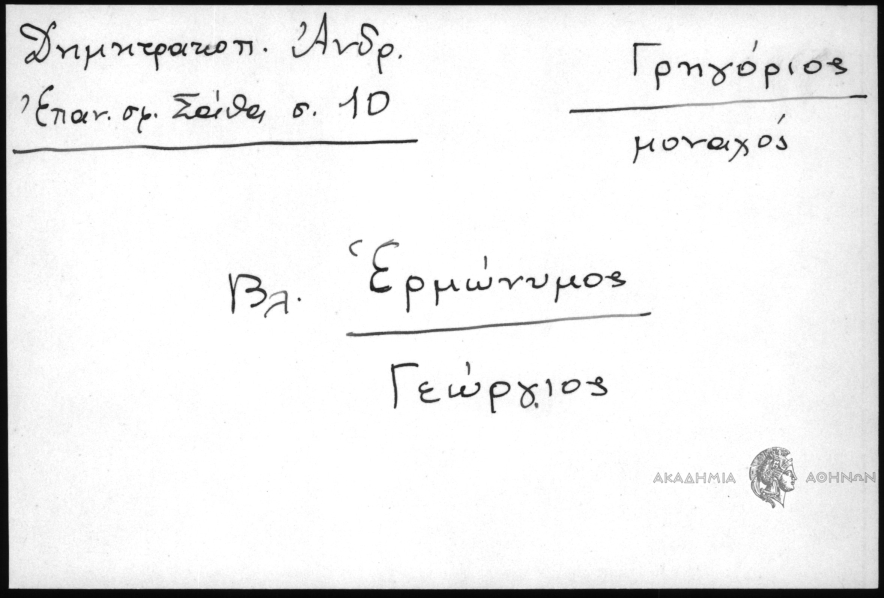 Δημητρακοπ. Ἀνδρ.
Ἐπαν. σφ. Σάθα σ. 10
Γρηγόριος
μοναχός
Βλ. Ἑρμώνυμος
Γεώργιος
ΑΚΑΔΗΜΙΑ ΑΘΗΝΩΝ